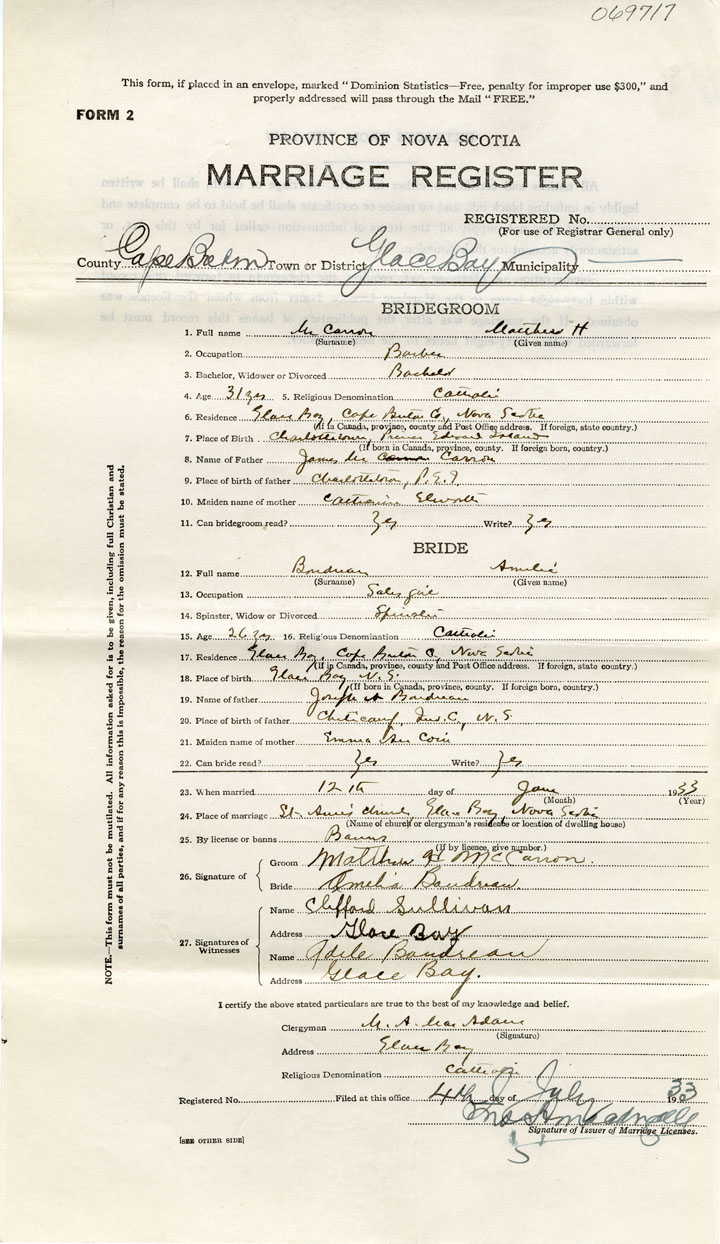 069717
This form, if placed in an envelope, marked "Dominion Statistics—Free, penalty for improper use $300," and
properly addressed will pass through the Mail "FREE."
FORM 2
PROVINCE OF NOVA SCOTIA
MARRIAGE REGISTER
REGISTERED No.
(For use of Registrar General only)
County Cape Breton Town or District Glace Bay Municipality
BRIDEGROOM
1. Full name Mc Carron Matthew H
(Surname) (Given name)
2. Occupation Barber
3. Bachelor, Widower or Divorced Bachelor
4. Age 31 yrs 5. Religious Denomination Catholic
6. Residence Glace Bay, Cape Breton Co, Nova Scotia
(If in Canada, province, county and Post Office address. If foreign, state country.)
7. Place of Birth Charlottetown, Prince Edward Island
(If born in Canada, province, county. If foreign born, country.)
8. Name of Father James Mc Carron
9. Place of birth of father Charlottetown, P.E.I.
10. Maiden name of mother Catherine
11. Can bridegroom read? Yes Write? Yes
BRIDE
12. Full name Boudreau Amelia
(Surname) (Given name)
13. Occupation Sales girl
14. Spinster, Widow or Divorced Spinster
15. Age 26 yrs 16. Religious Denomination Catholic
17. Residence Glace Bay, Cape Breton C, Nova Scotia
(If in Canada, province, county and Post Office address. If foreign, state country.)
18. Place of birth Glace Bay N.S.
(If born in Canada, province, county. If foreign born, country.)
19. Name of father Joseph A Boudreau
20. Place of birth of father Cheticamp, Inv. C., N.S.
21. Maiden name of mother Emma
22. Can bride read? Yes Write? Yes
23. When married 12th day of June 1933
(Month) (Year)
24. Place of marriage St. Ann's church, Glace Bay, Nova Scotia
(Name of church or clergyman's residence or location of dwelling house)
25. By license or banns Banns
(If by licence, give number.)
26. Signature of Groom Matthew H McCarron.
Bride Amelia Boudreau.
27. Signatures of Witnesses Name Clifford Sullivan
Address Glace Bay
Name Adele Boudreau
Address Glace Bay.
I certify the above stated particulars are true to the best of my knowledge and belief.
Clergyman M. A. Mac Adam
(Signature)
Address Glace Bay
Religious Denomination Catholic
Registered No. Filed at this office 4th day of July 1933
Signature of Issuer of Marriage Licenses.
[SEE OTHER SIDE]
NOTE.—This form must not be mutilated. All information asked for is to be given, including full Christian and
surnames of all parties, and if for any reason this is impossible, the reason for the omission must be stated.